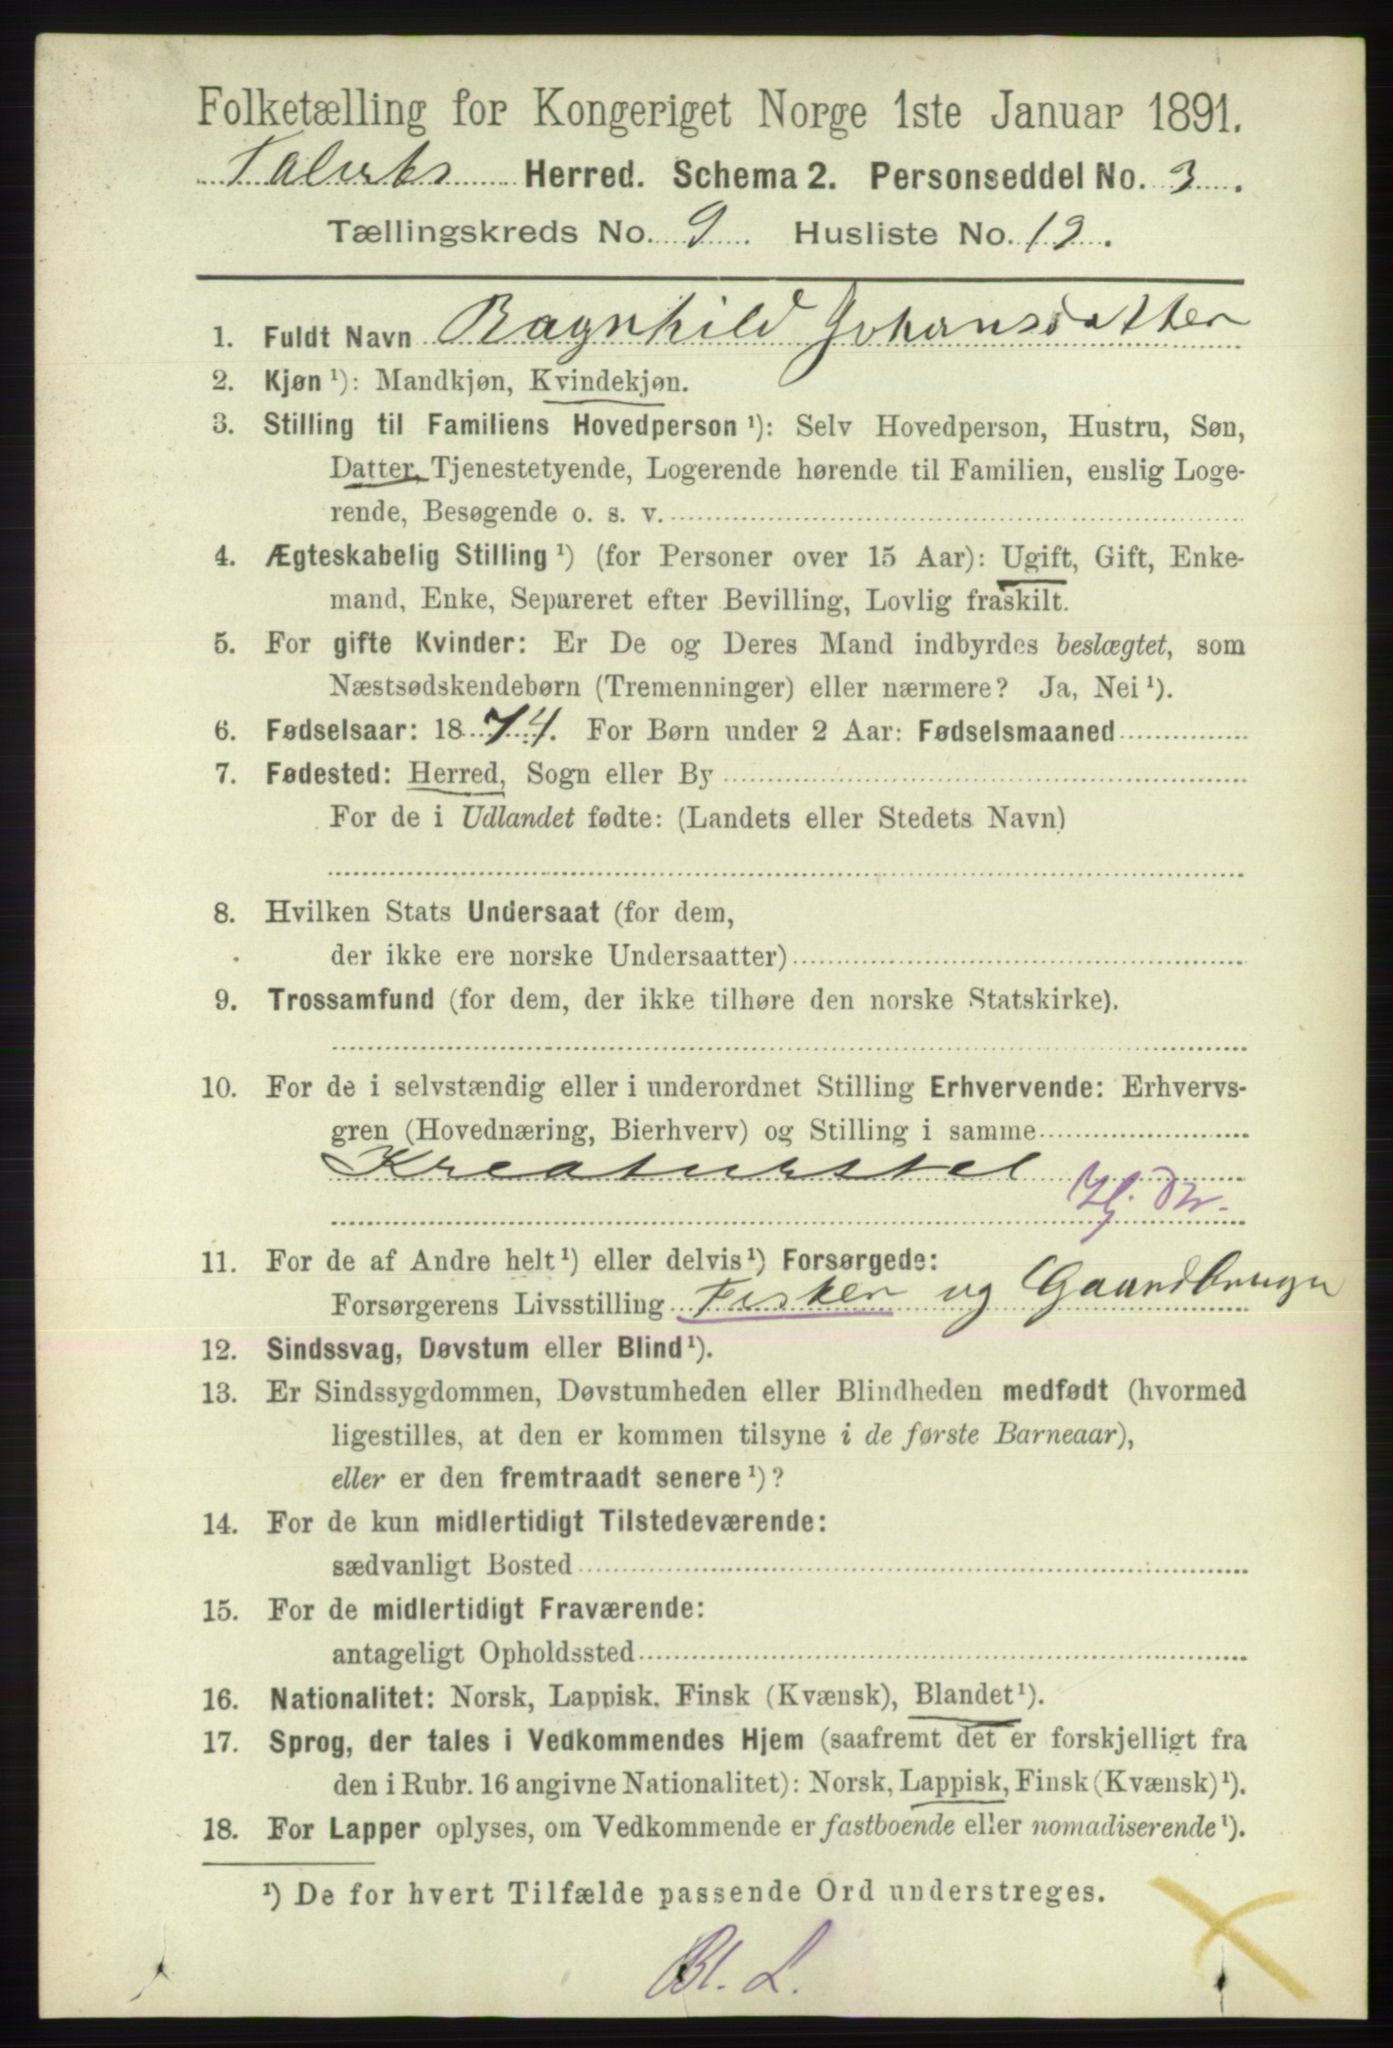 Folketælling for Kongeriget Norge 1ste Januar 1891.
Herred. Schema 2. Personseddel No. 3.
Tællingskreds No. 9. Husliste No. 12.
1. Fuldt Navn Ragnhild Johansdatter
2. Kjøn ¹): Mandkjøn, Kvindekjøn.
3. Stilling til Familiens Hovedperson ¹): Selv Hovedperson, Hustru, Søn,
Datter, Tjenestetyende, Logerende hørende til Familien, enslig Loge-
rende, Besøgende o. s. v.
4. Ægteskabelig Stilling ¹) (for Personer over 15 Aar): Ugift, Gift, Enke-
mand, Enke, Separeret efter Bevilling, Lovlig fraskilt.
5. For gifte Kvinder: Er De og Deres Mand indbyrdes beslægtet, som
Næstsødskendebørn (Tremenninger) eller nærmere? Ja, Nei ¹).
6. Fødselsaar: 1874. For Børn under 2 Aar: Fødselsmaaned
7. Fødested: Herred, Sogn eller By
For de i Udlandet fødte: (Landets eller Stedets Navn)
8. Hvilken Stats Undersaat (for dem,
der ikke ere norske Undersaatter)
9. Trossamfund (for dem, der ikke tilhøre den norske Statskirke).
10. For de i selvstændig eller i underordnet Stilling Erhvervende: Erhvervs-
gren (Hovednæring, Bierhverv) og Stilling i samme
Kreaturstel
Hj. Dr.
11. For de af Andre helt ¹) eller delvis ¹) Forsørgede:
Forsørgerens Livsstilling Fisker og Gaardbruger
12. Sindssvag, Døvstum eller Blind ¹).
13. Er Sindssygdommen, Døvstumheden eller Blindheden medfødt (hvormed
ligestilles, at den er kommen tilsyne i de første Barneaar),
eller er den fremtraadt senere ¹)?
14. For de kun midlertidigt Tilstedeværende:
sædvanligt Bosted
15. For de midlertidigt Fraværende:
antageligt Opholdssted
16. Nationalitet: Norsk, Lappisk, Finsk (Kvænsk), Blandet ¹).
17. Sprog, der tales i Vedkommendes Hjem (saafremt det er forskjelligt fra
den i Rubr. 16 angivne Nationalitet): Norsk, Lappisk, Finsk (Kvænsk) ¹).
18. For Lapper oplyses, om Vedkommende er fastboende eller nomadiserende ¹).
¹) De for hvert Tilfælde passende Ord understreges.
Bl. L.